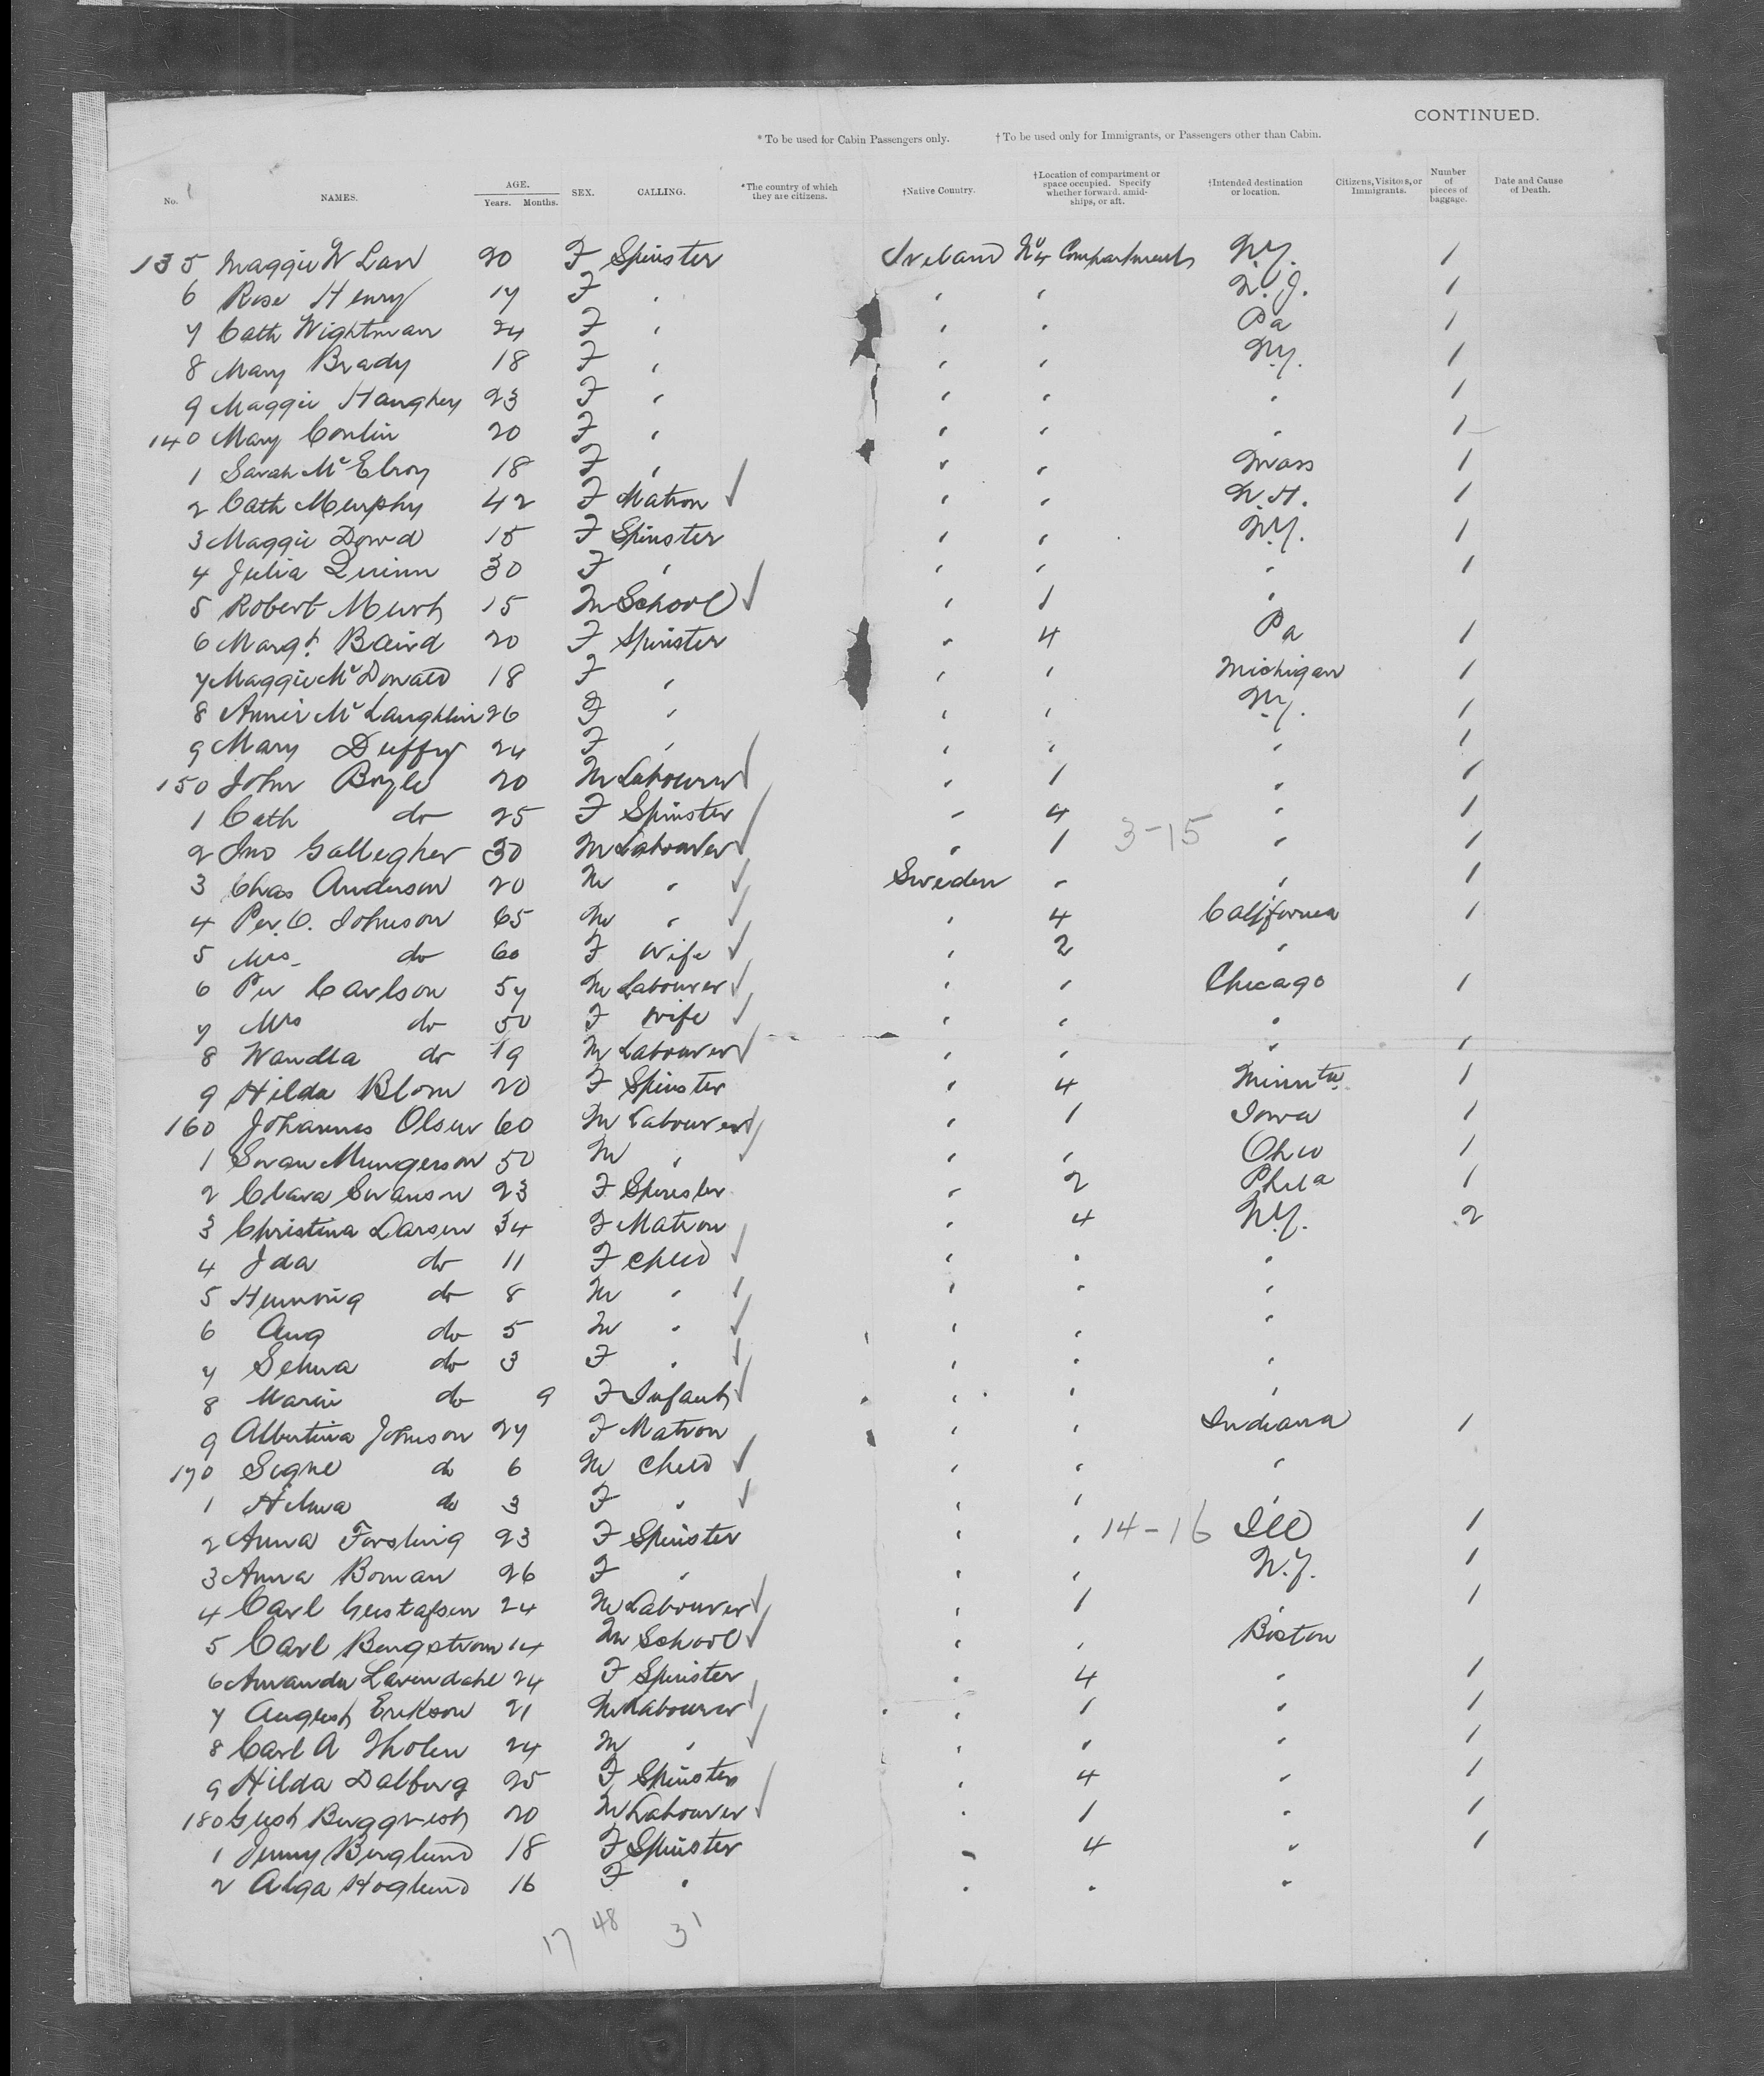 CONTINUED.
* To be used for Cabin Passengers only. † To be used only for Immigrants, or Passengers other than Cabin.
No. NAMES. AGE. Years. Months. SEX. CALLING. *The country of which they are citizens. †Native Country. †Location of compartment or space occupied. Specify whether forward, amidships, or aft. †Intended destination or location. Citizens, Visitors, or Immigrants. Number of pieces of baggage. Date and Cause of Death.
135 Maggie W Law 20 F Spinster Ireland No 4 Compartments N.Y. 1
6 Rose Henry 17 F " " " N.J. 1
7 Cath Wightman 24 F " " " Pa 1
8 Mary Brady 18 F " " " N.Y. 1
9 Maggie Haughey 23 F " " " " 1
140 Mary Conlin 20 F " " " " 1
1 Sarah McElroy 18 F " " " Mass 1
2 Cath Murphy 42 F Matron " " N.H. 1
3 Maggie Dowd 15 F Spinster " " N.Y. 1
4 Julia Quinn 30 F " " " " 1
5 Robert 15 M School " 1 "
6 Margt. Baird 20 F Spinster " 4 Pa 1
7 Maggie McDonald 18 F " " " Michigan 1
8 Annie McLaughlin 26 F " " " N.Y. 1
9 Mary Duffy 24 F " " " " 1
150 John Boyle 20 M Labourer " 1 " 1
1 Cath do 25 F Spinster " 4 " 1
2 Jno Gallegher 30 M Labourer " 1 3-15 " 1
3 Chas Anderson 20 M " Sweden " " 1
4 Per. O. Johnson 65 M " " 4 California 1
5 Mrs do 60 F Wife " 2 "
6 Per Carlson 57 M Labourer " " Chicago 1
7 Mrs do 50 F Wife " " "
8 Wandla do 19 M Labourer " " " 1
9 Hilda Blom 20 F Spinster " 4 Minnta 1
160 Johannes Olsen 60 M Labourer " 1 Iowa 1
1 Swan Mungerson 50 M " " " Ohio 1
2 Clara Swanson 23 F Spinster " 2 Phila 1
3 Christina Larsen 34 F Matron " 4 N.Y. 2
4 Ida do 11 F Child " " "
5 Hennvig do 8 M " " " "
6 Aug do 5 M " " " "
7 Selma do 3 F " " " "
8 Marie do 9 F Infant " " "
9 Albertina Johnson 27 F Matron " " Indiana 1
170 Signe do 6 M Child " " "
1 Hilma do 3 F " " " "
2 Anna Forsling 23 F Spinster " " 14-16 Ill 1
3 Anna Boman 26 F " " " N.Y. 1
4 Carl Gustafsen 24 M Labourer " 1 " 1
5 Carl Bengstrom 14 M School " " Boston
6 Amanda Lavendahl 24 F Spinster " 4 " 1
7 August Erikson 21 M Labourer " 1 " 1
8 Carl A Tholen 24 M " " " " 1
9 Hilda Dalberg 25 F Spinster " 4 " 1
180 Gust Bergqvist 20 M Labourer " 1 " 1
1 Jenny Berglund 18 F Spinster " 4 " 1
2 Alga Hoglund 16 F " " " "
17 48 31